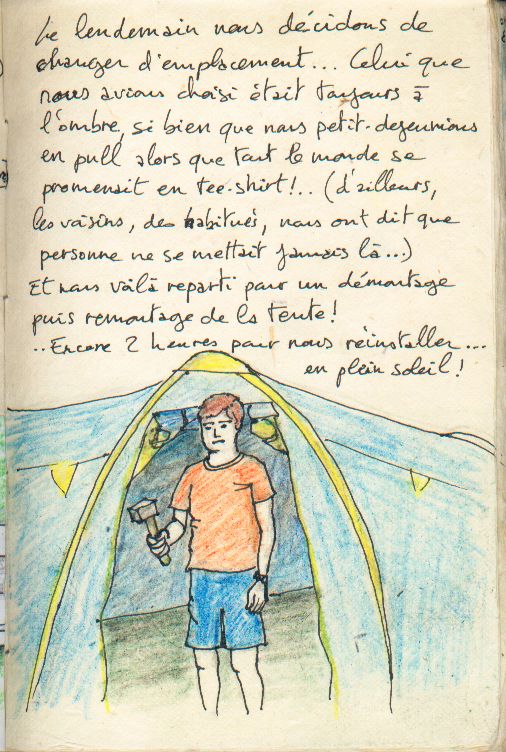 Le lendemain nous décidons de
changer d'emplacement... Celui que
nous avions choisi était toujours à
l'ombre, si bien que nous petit-dejeunions
en pull alors que tout le monde se
promenait en tee-shirt!.. (d'ailleurs,
les voisins, des habitués, nous ont dit que
personne ne se mettait jamais là...)
Et nous voilà reparti pour un démontage
puis remontage de la tente!
..Encore 2 heures pour nous réinstaller...
en plein soleil!